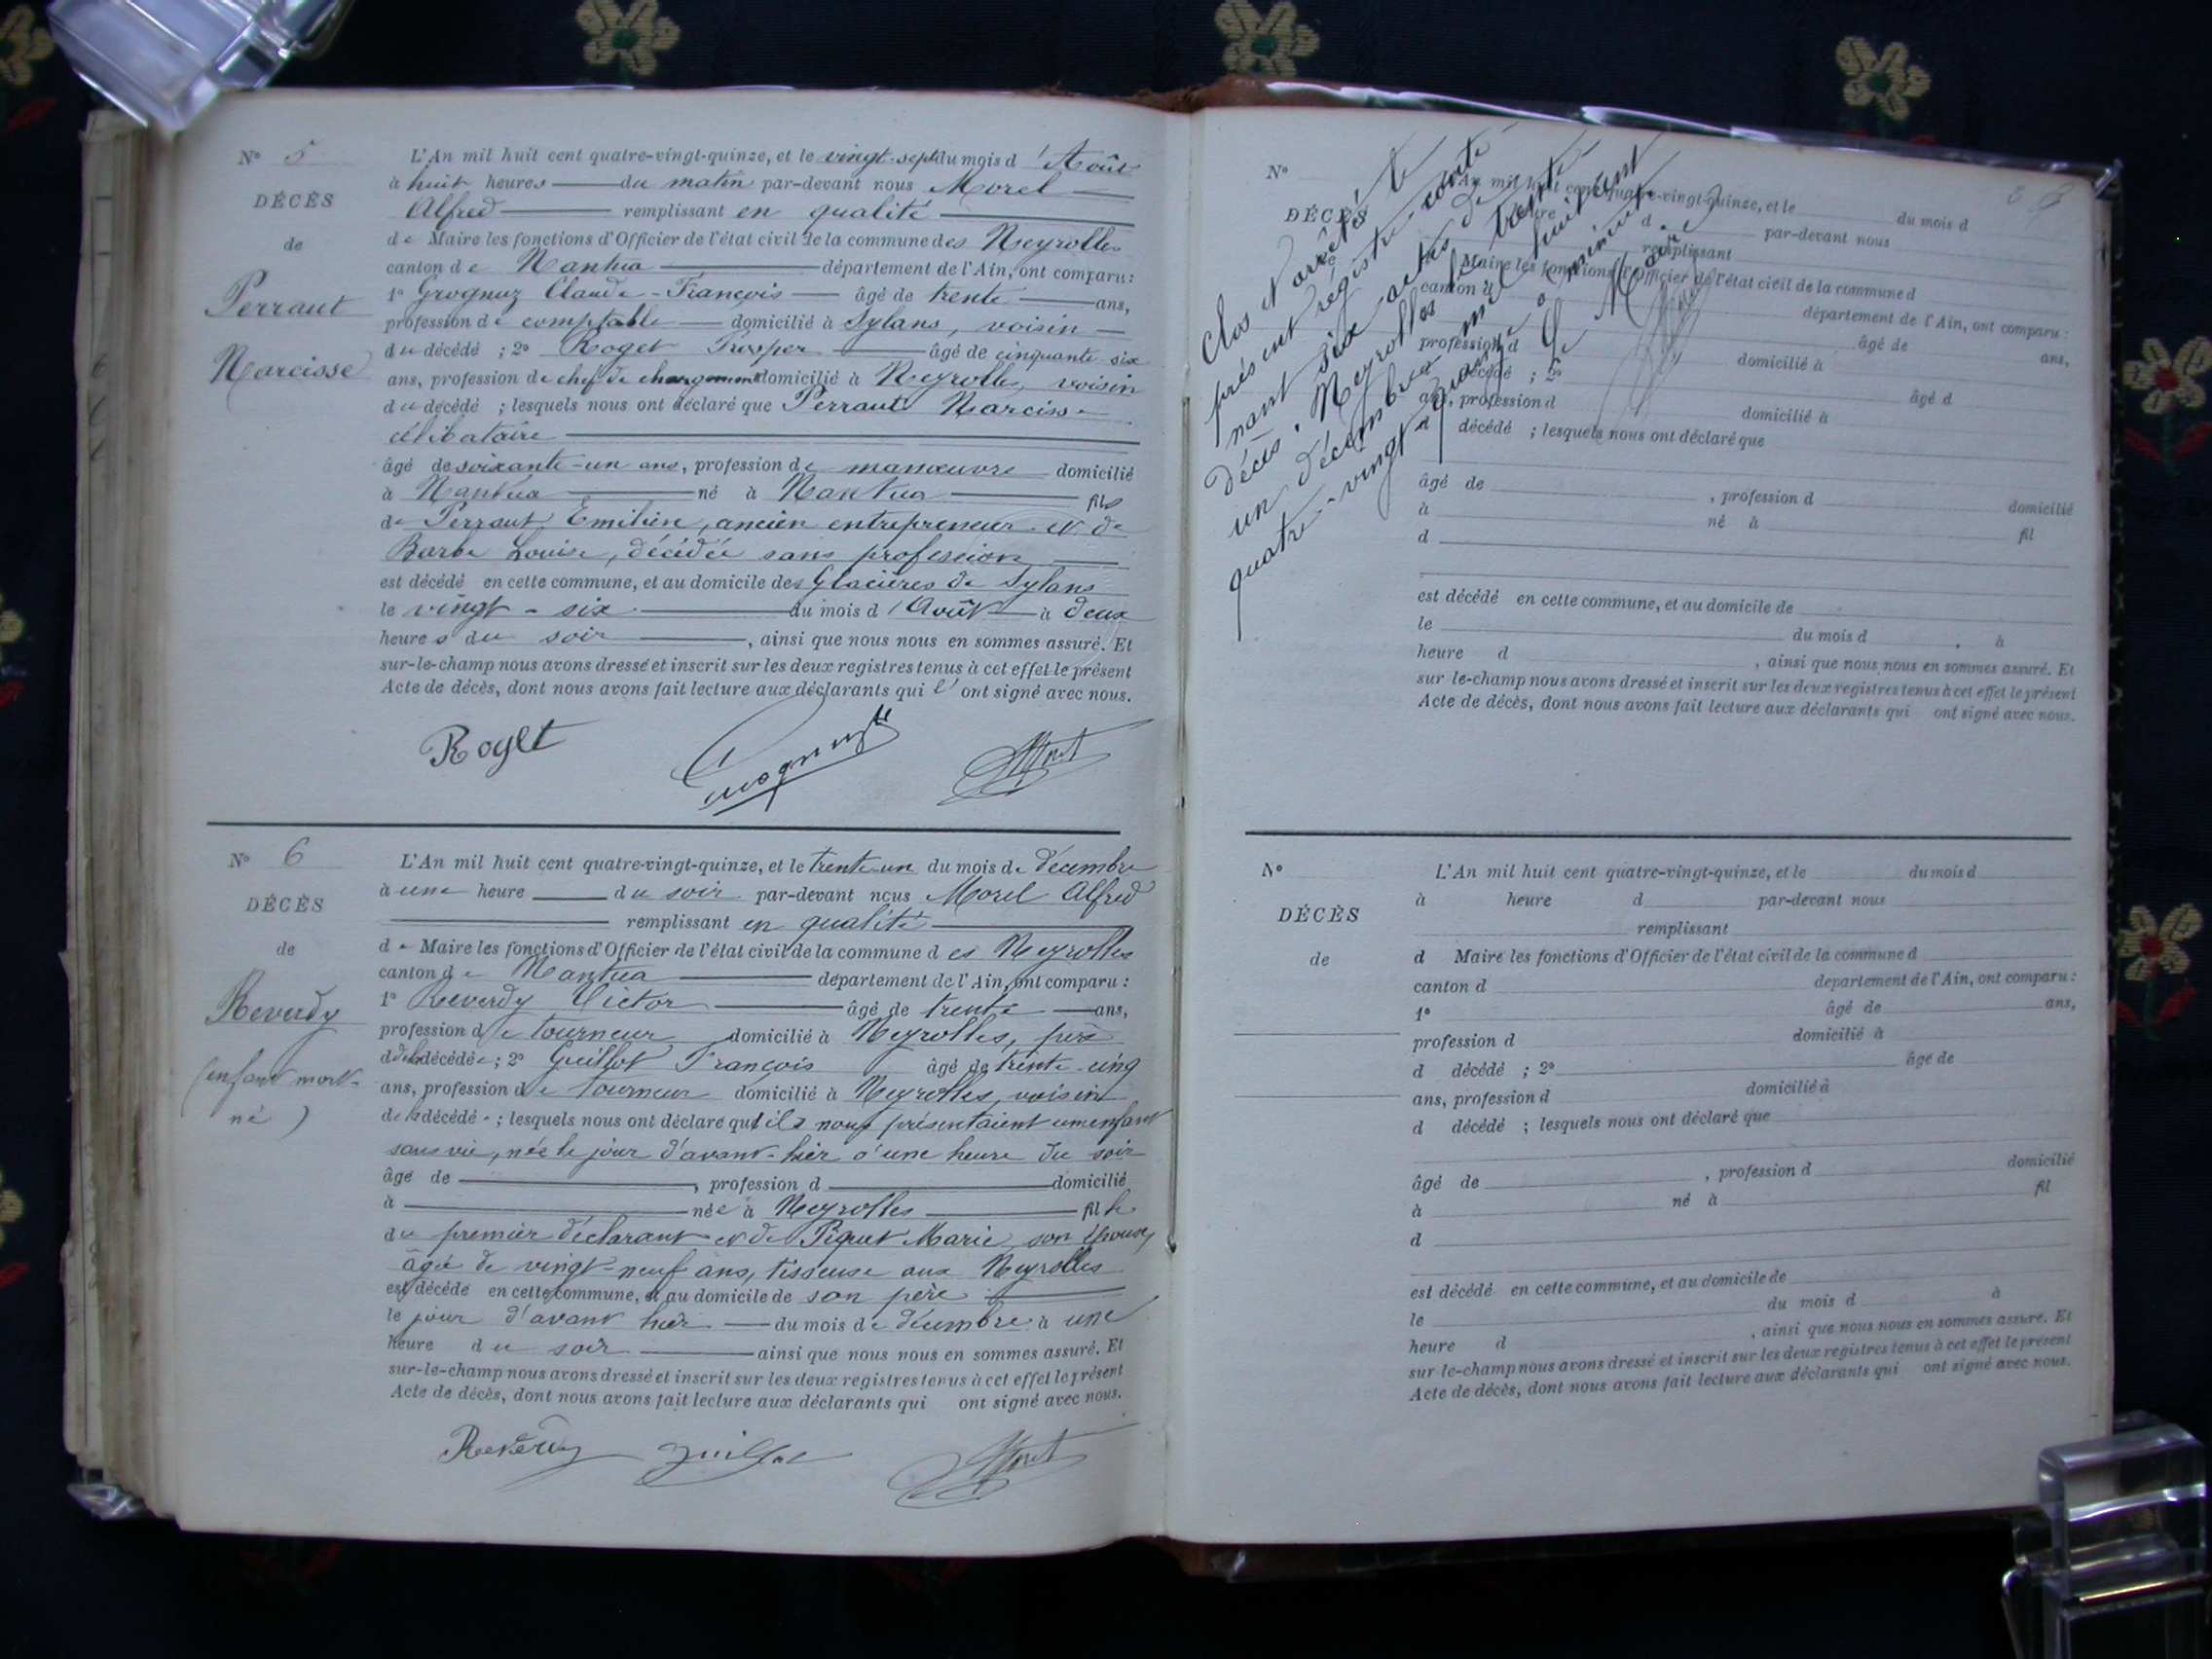 N° 5
DÉCÈS
de
Perraut
Narcisse
L'An mil huit cent quatre-vingt-quinze, et le vingt-sept du mois d'Août
à huit heures du matin par-devant nous Morel
Alfred remplissant en qualité
de Maire les fonctions d'Officier de l'état civil de la commune des Neyrolles
canton de Nantua département de l'Ain, ont comparu :
1° Grognuz Claude-François âgé de trente ans,
profession de comptable domicilié à Sylans, voisin
du décédé ; 2° Roget Prosper âgé de cinquante six
ans, profession de chef de chargement domicilié à Neyrolles, voisin
du décédé ; lesquels nous ont déclaré que Perraut Narcisse
célibataire
âgé de soixante-un ans, profession de manœuvre domicilié
à Nantua né à Nantua fils
de Perraut Emilien, ancien entrepreneur et de
Barbe Louise, décédée sans profession
est décédé en cette commune, et au domicile des Glacières de Sylans
le vingt-six du mois d'Août à deux
heures du soir, ainsi que nous nous en sommes assuré. Et
sur-le-champ nous avons dressé et inscrit sur les deux registres tenus à cet effet le présent
Acte de décès, dont nous avons fait lecture aux déclarants qui l'ont signé avec nous.
Roget Grognuz Morel
N° 6
DÉCÈS
de
Reverdy
(enfant mort-
né)
L'An mil huit cent quatre-vingt-quinze, et le trente-un du mois de décembre
à une heure du soir par-devant nous Morel Alfred
remplissant en qualité
de Maire les fonctions d'Officier de l'état civil de la commune des Neyrolles
canton de Nantua département de l'Ain, ont comparu :
1° Reverdy Victor âgé de trente ans,
profession de tourneur domicilié à Neyrolles, père
de la décédée ; 2° Guillot François âgé de trente-cinq
ans, profession de tourneur domicilié à Neyrolles, voisin
de la décédée ; lesquels nous ont déclaré qu'ils nous présentaient un enfant
sans vie, née le jour d'avant-hier à une heure du soir
âgé de , profession d domicilié
à née à Neyrolles fille
du premier déclarant et de Piquet Marie, son épouse,
âgée de vingt-neuf ans, tisseuse aux Neyrolles
est décédé en cette commune, et au domicile de son père
le jour d'avant hier du mois de décembre à une
heure du soir ainsi que nous nous en sommes assuré. Et
sur-le-champ nous avons dressé et inscrit sur les deux registres tenus à cet effet le présent
Acte de décès, dont nous avons fait lecture aux déclarants qui ont signé avec nous.
Reverdy Guillot Morel
Clos et arrêté le
présent registre conte-
nant six actes de
décès. Neyrolles le trente-
un décembre mil huit cent
quatre-vingt-quinze à minuit
Le Maire
N°
DÉCÈS
L'An mil huit cent quatre-vingt-quinze, et le du mois d
heure d par-devant nous
remplissant
Maire les fonctions d'Officier de l'état civil de la commune d
canton d département de l'Ain, ont comparu :
âgé de ans,
profession d domicilié à
décédé ; 2° âgé d
ans, profession d domicilié à
décédé ; lesquels nous ont déclaré que
âgé de , profession d domicilié
à né à fil
d
est décédé en cette commune, et au domicile de
le du mois d , à
heure d , ainsi que nous nous en sommes assuré. Et
sur le-champ nous avons dressé et inscrit sur les deux registres tenus à cet effet le présent
Acte de décès, dont nous avons fait lecture aux déclarants qui ont signé avec nous.
N°
DÉCÈS
de
L'An mil huit cent quatre-vingt-quinze, et le du mois d
à heure d par-devant nous
remplissant
d Maire les fonctions d'Officier de l'état civil de la commune d
canton d département de l'Ain, ont comparu :
1° âgé de ans,
profession d domicilié à
d décédé ; 2° âgé de
ans, profession d domicilié à
d décédé ; lesquels nous ont déclaré que
âgé de , profession d domicilié
à né à fil
d
est décédé en cette commune, et au domicile de
le du mois d à
heure d , ainsi que nous nous en sommes assuré. Et
sur le-champ nous avons dressé et inscrit sur les deux registres tenus à cet effet le présent
Acte de décès, dont nous avons fait lecture aux déclarants qui ont signé avec nous.